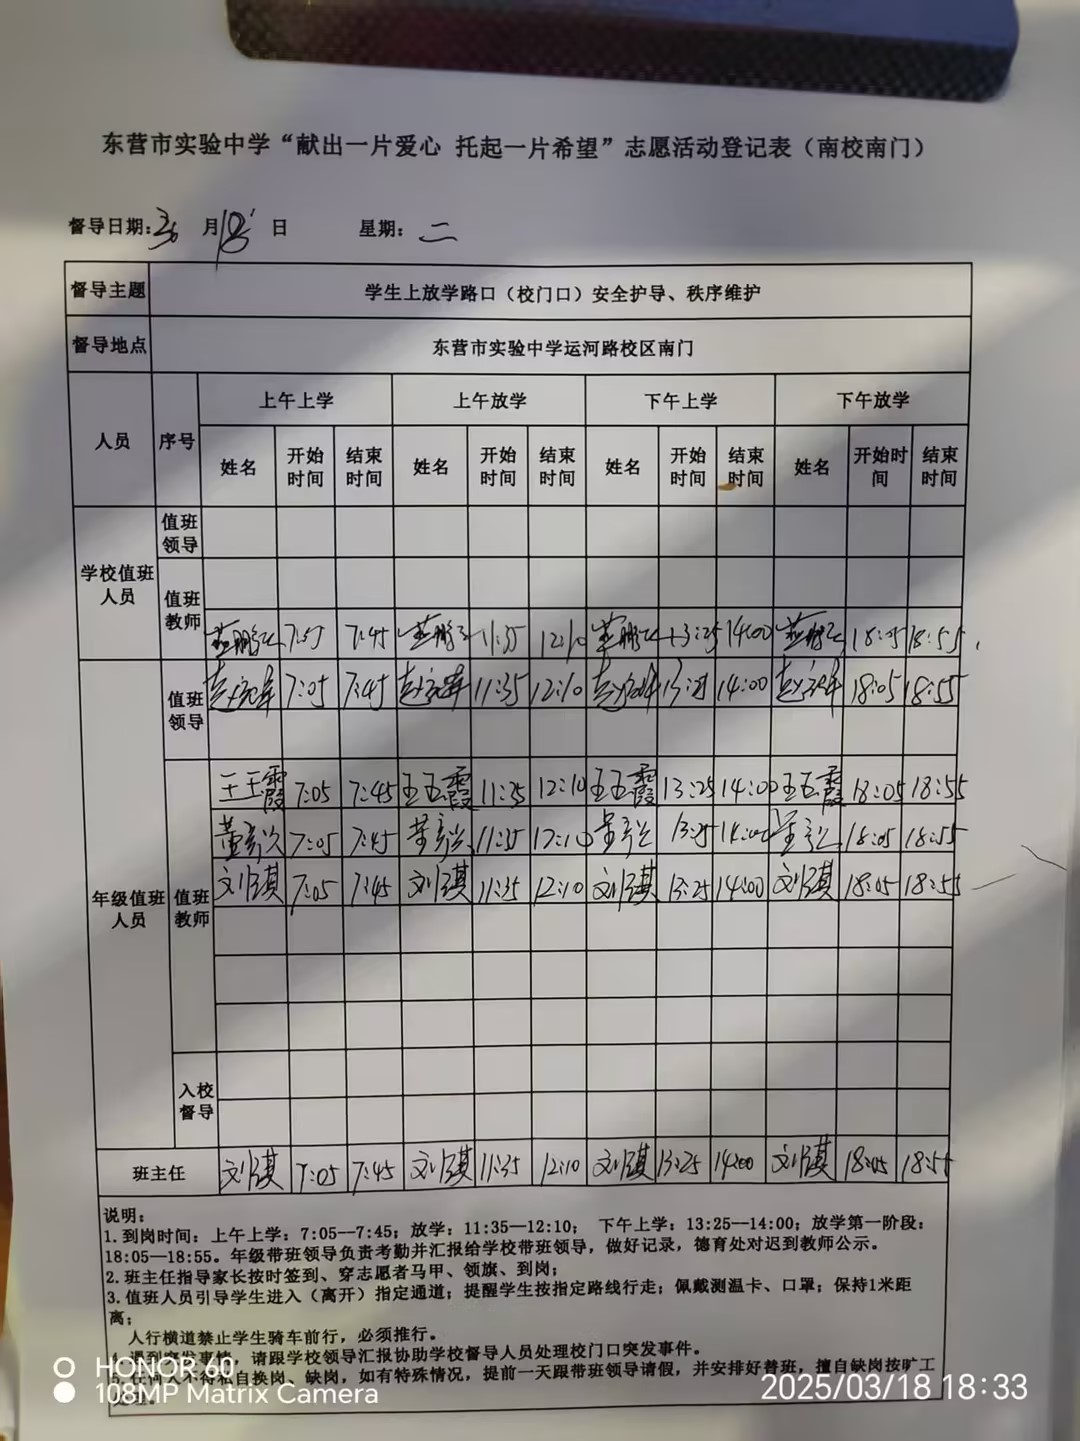 东营市实验中学“献出一片爱心 托起一片希望”志愿活动登记表（南校南门）
督导日期: 月18日 星期: 二
督导主题 学生上放学路口（校门口）安全护导、秩序维护
督导地点 东营市实验中学运河路校区南门
人员 序号 上午上学 上午放学 下午上学 下午放学
姓名 开始时间 结束时间 姓名 开始时间 结束时间 姓名 开始时间 结束时间 姓名 开始时间 结束时间
学校值班人员 值班领导
值班教师 7:45 11:35 12:10 13:25 14:00 18:05 18:55
年级值班人员 值班领导 7:05 7:45 11:35 12:10 14:00 18:05 18:55
值班教师 王玉霞 7:05 7:45 王玉霞 11:35 12:10 王玉霞 13:25 14:00 王玉霞 18:05 18:55
7:05 7:45 11:35 12:10 13:25 14:00 18:05 18:55
7:05 7:45 11:35 12:10 13:25 14:00 18:05 18:55
入校督导
班主任 7:05 7:45 11:35 12:10 13:25 14:00 18:05 18:55
说明:
1.到岗时间: 上午上学: 7:05—7:45; 放学: 11:35—12:10; 下午上学: 13:25—14:00; 放学第一阶段:
18:05—18:55。年级带班领导负责考勤并汇报给学校带班领导, 做好记录, 德育处对迟到教师公示。
2.班主任指导家长按时签到、穿志愿者马甲、领旗、到岗;
3.值班人员引导学生进入（离开）指定通道; 提醒学生按指定路线行走; 佩戴测温卡、口罩; 保持1米距
离;
人行横道禁止学生骑车前行, 必须推行。
4.遇到突发事情, 请跟学校领导汇报协助学校督导人员处理校门口突发事件。
5.任何人不得私自换岗、缺岗, 如有特殊情况, 提前一天跟带班领导请假, 并安排好替班, 擅自缺岗按旷工
处理。
HONOR 60
108MP Matrix Camera
2025/03/18 18:33